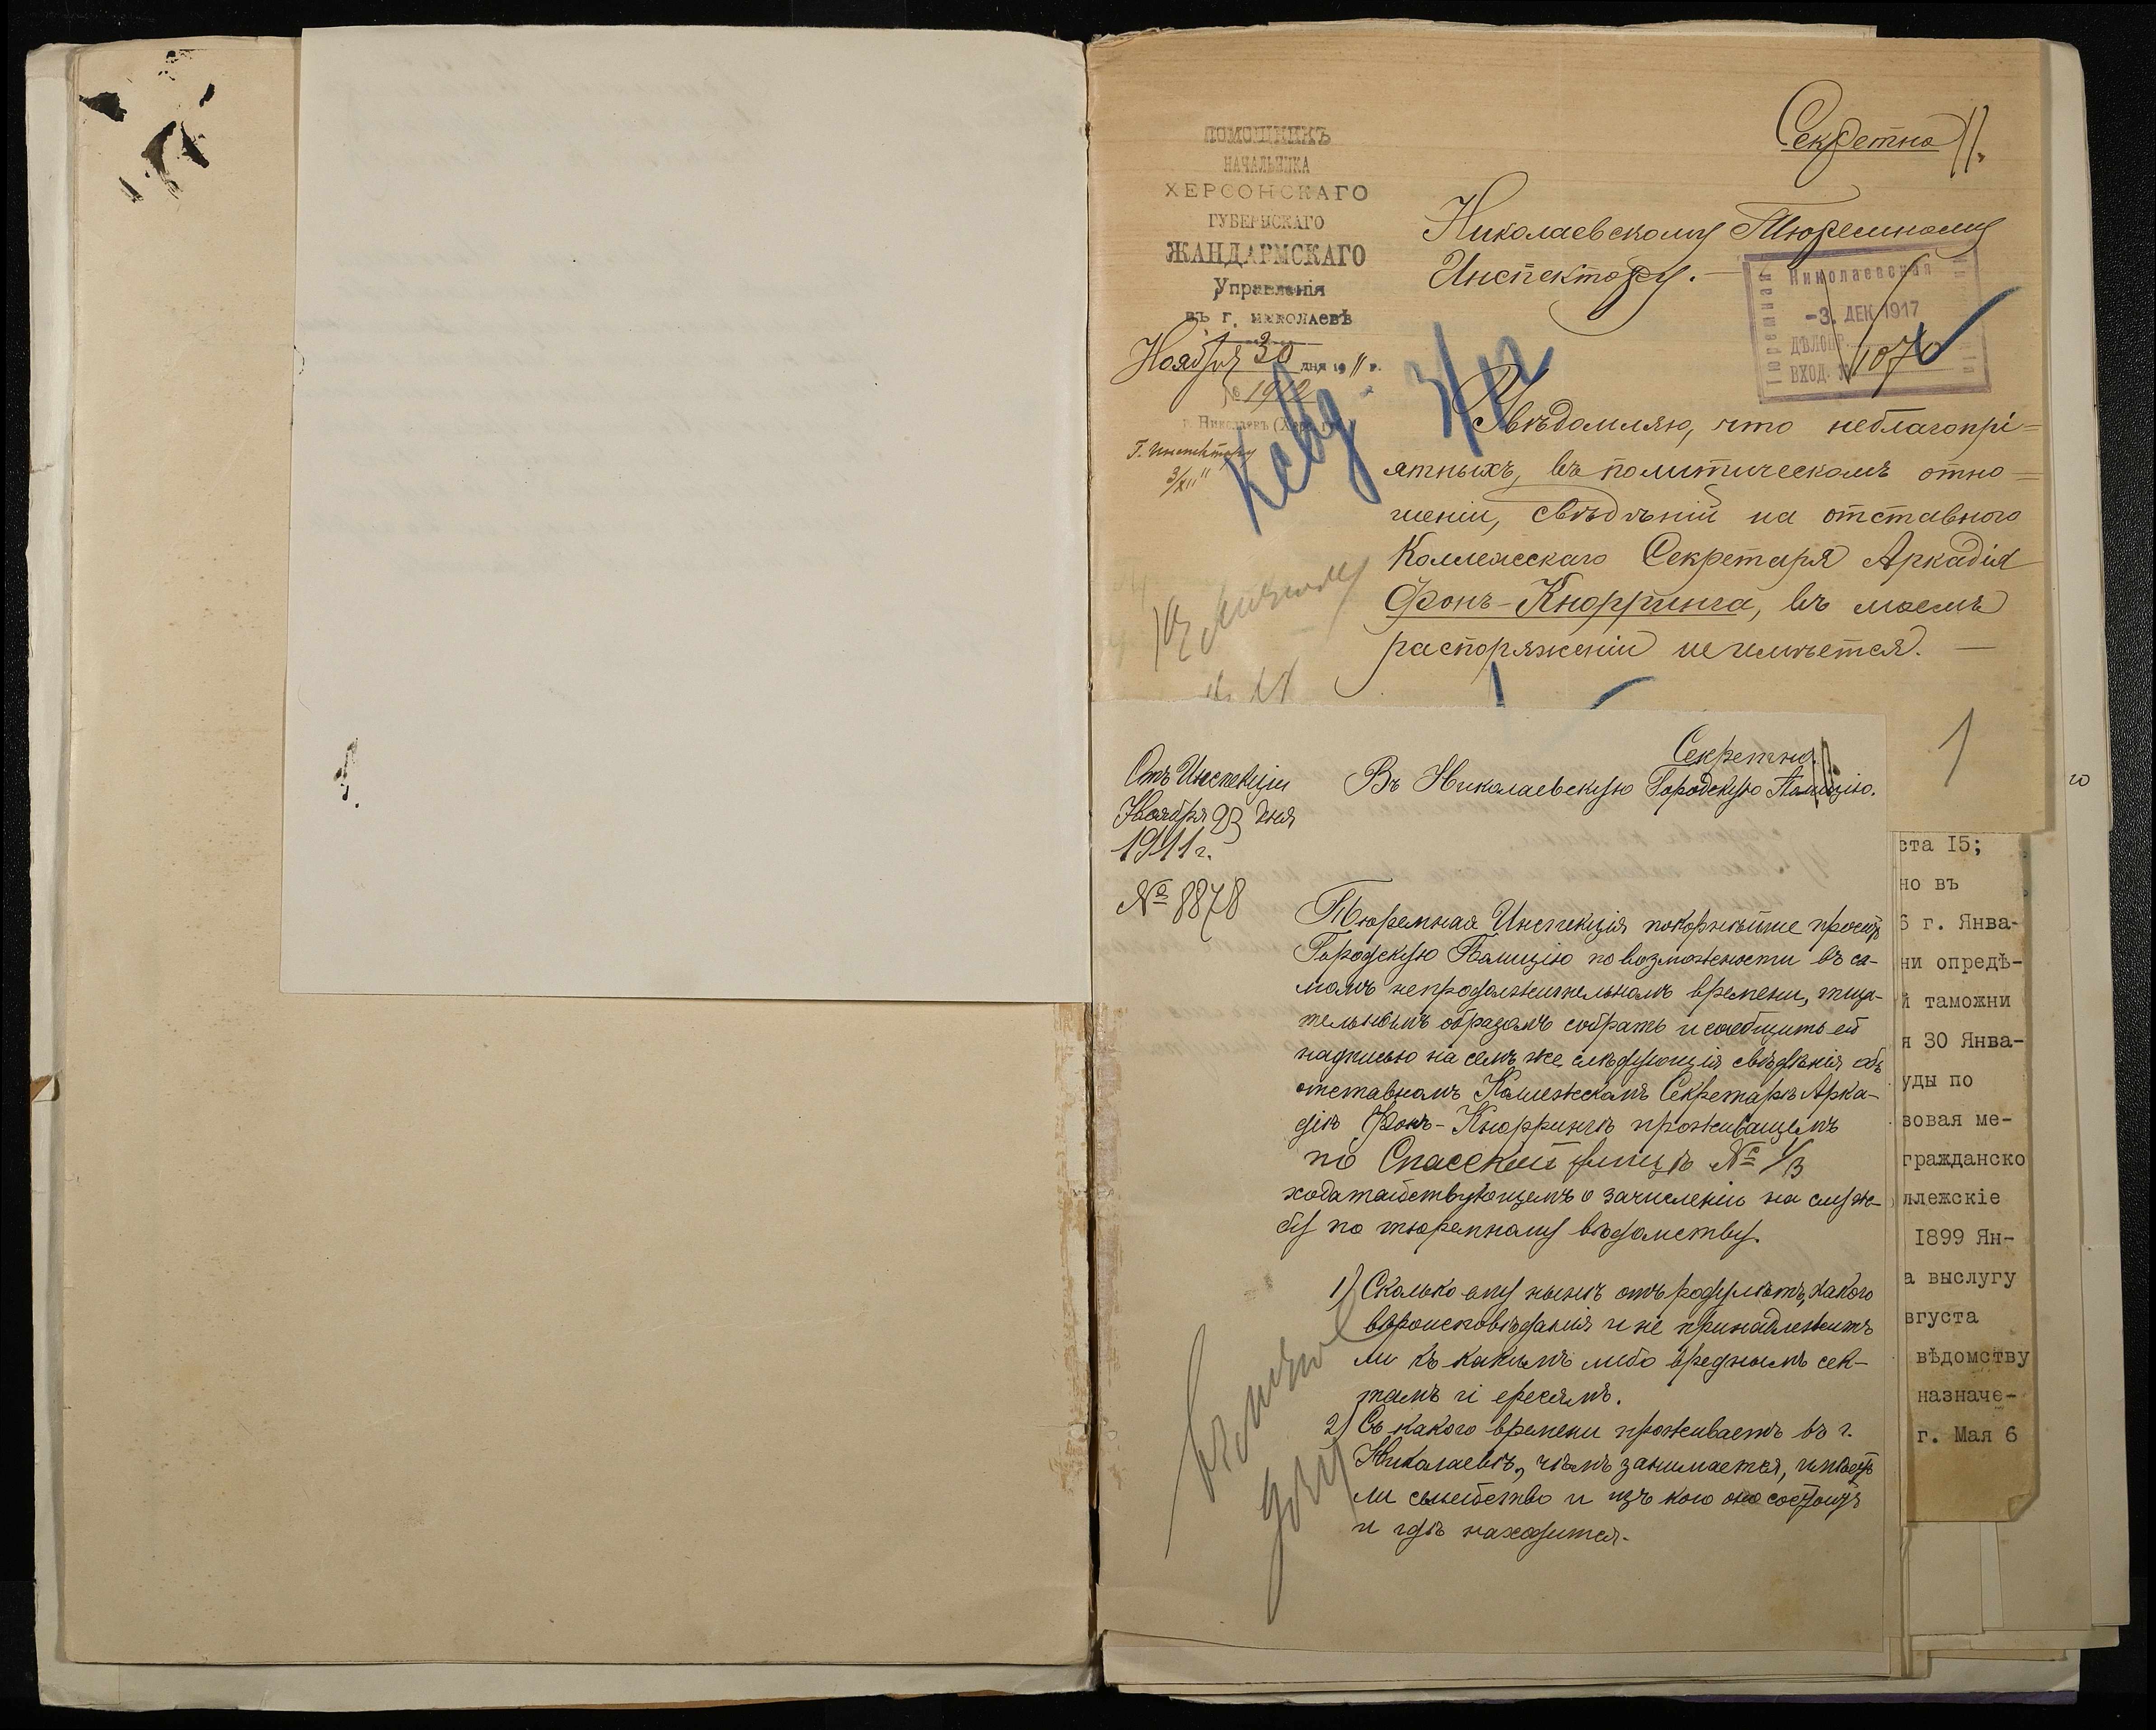 Секретно
ПОМОЩНИКЪ
НАЧАЛЬНИКА
ХЕРСОНСКАГО
ГУБЕРНСКАГО
ЖАНДАРМСКАГО
Управленія
въ г. Николаевѣ
Ноября 30 дня 1911 г.
№ 1912
г. Николаевъ (Херс. г.)
Г. Инспектору
3/XII
Николаевскому Тюремному
Инспектору.
Николаевская
Тюремная
-3. ДЕК 1917
ДѢЛОПР.
ВХОД. №
3/12
Увѣдомляю, что неблагопрі=
ятныхъ, въ политическомъ отно=
шеніи, свѣдѣній на отставного
Коллежскаго Секретаря Аркадія
Фонъ-Кнорринга, въ моемъ
распоряженіи не имѣется. —
1
Секретно.
Отъ Инспекціи
Ноября 23 дня
1911 г.
№ 8878
Въ Николаевскую Городскую Полицію.
Тюремная Инспекція покорнѣйше проситъ
Городскую Полицію по возможности въ са-
момъ непродолжительномъ времени, тща-
тельнымъ образомъ собрать и сообщить ей
надписью на семъ же слѣдующія свѣдѣнія объ
отставномъ Коллежскомъ Секретарѣ Арка-
діѣ Фонъ-Кноррингѣ проживащемъ
по Спасской улицѣ № 1/3
ходатайствующемъ о зачисленіи на служ-
бу по тюремному вѣдомству.
1) Сколько ему нынѣ отъ роду лѣтъ, какого
вѣроисповѣданія и не принадлежитъ
ли къ какимъ либо вреднымъ сек-
тамъ и ересямъ.
2) Съ какого времени проживаетъ въ г.
Николаевѣ, чѣмъ занимается, имѣетъ
ли семейство и изъ кого оно состоитъ
и гдѣ находится.
го
ста 15;
но въ
6 г. Янва-
ни опредѣ-
й таможни
я 30 Янва-
уды по
зовая ме-
гражданско
ллежскіе
1899 Ян-
а выслугу
вгуста
вѣдомству
назначе-
г. Мая 6